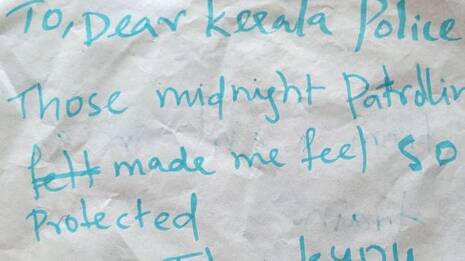 To, Dear Kerala Police
Those midnight Patrollin
felt made me feel so
Protected